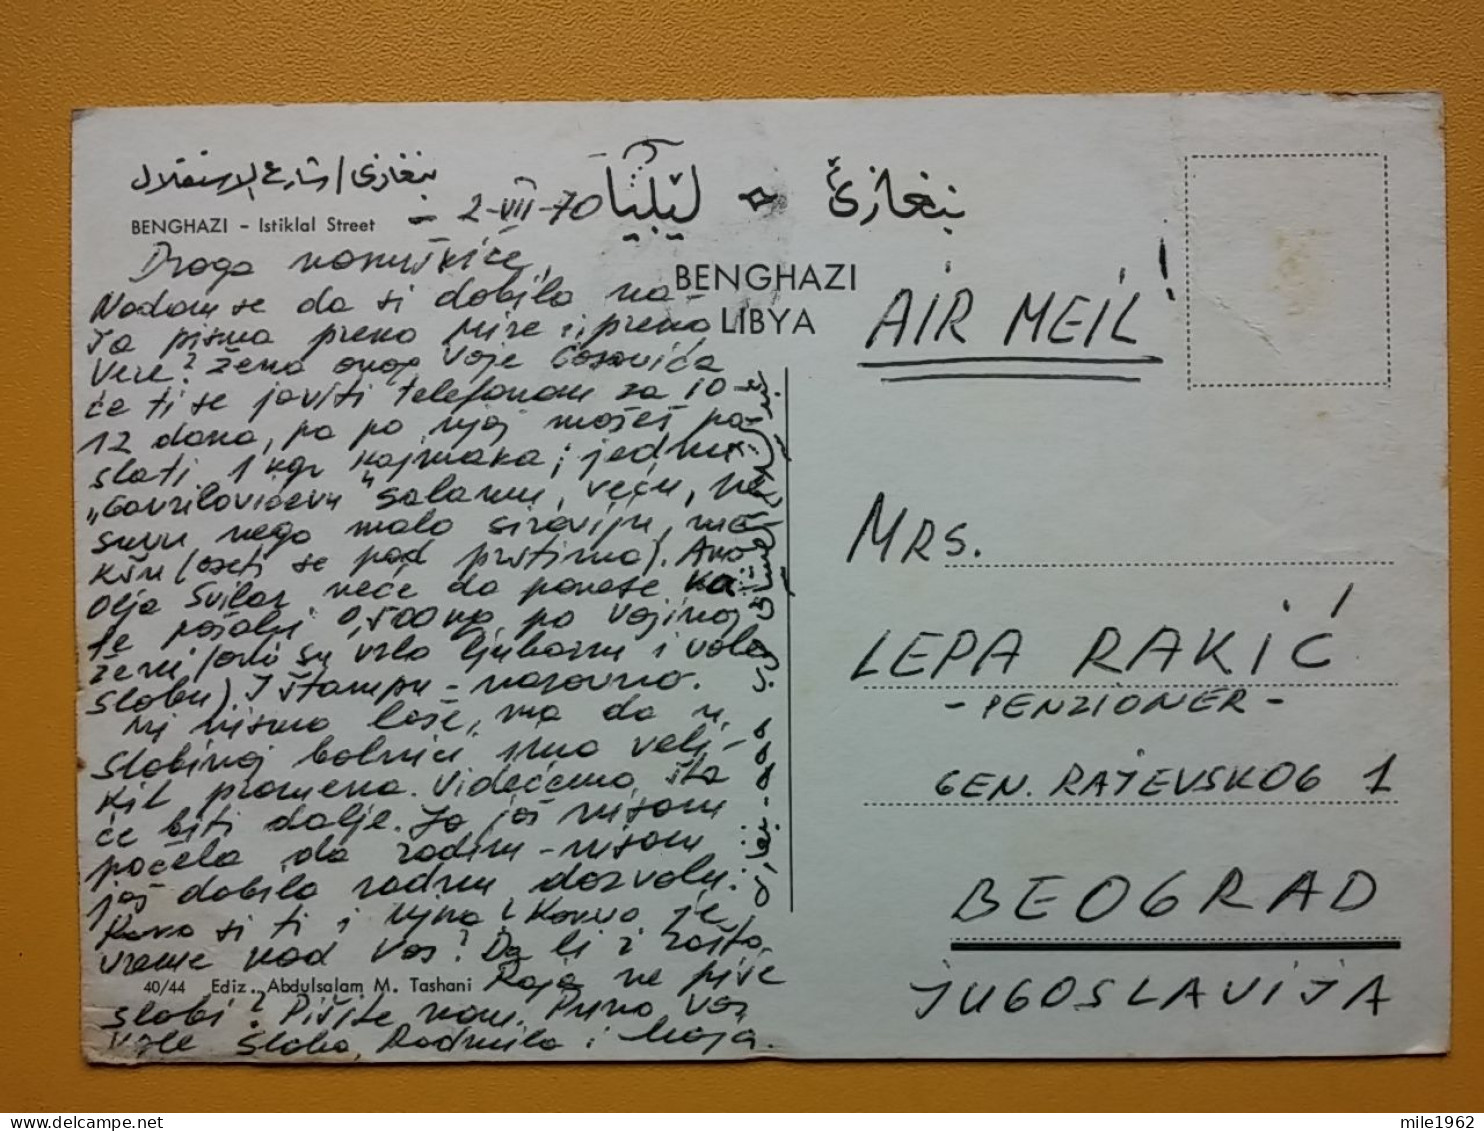 بنغازى / شارع الاستقلال
BENGHAZI - Istiklal Street
- 2-VII-70
ليبيا بنغازى
BENGHAZI
LIBYA
Draga mamuškice,
Nadam se da si dobila na-
ša pisma preko Mire i preko
Vere? Žena onog Voje Ćosovića
će ti se javiti telefonom za 10-
12 dana, pa po njoj možeš po-
slati 1 kgr kajmaka i jednu
"Gavrilovićevu" salamu, veću, ne
suvu nego malo siroviju, me-
kšu (oseti se pod prstima). Ako
Olja Svilar neće da ponese
pošalji 0,500 kg po Vojinoj
ženi (oni su vrlo ljubazni i vole
Slobu). I štampu - naravno.
Mi nismo loše, ma da u
Slobinoj bolnici ima veli-
kih promena. Videćemo šta
će biti dalje. Ja još nisam
počela da radim - nisam
još dobila radnu dozvolu.
Kako si ti i njina? Kakvo je
vreme kod vas? Da li i zašto
40/44 Ediz. Abdulsalam M. Tashani Raja ne piše
Slobi? Pišite nam. Puno vas
vole Sloba, Radmila i Maja.
AIR MEIL!
MRS.
LEPA RAKIĆ
- PENZIONER -
GEN. RAJEVSKOG 1
BEOGRAD
JUGOSLAVIJA
mile1962